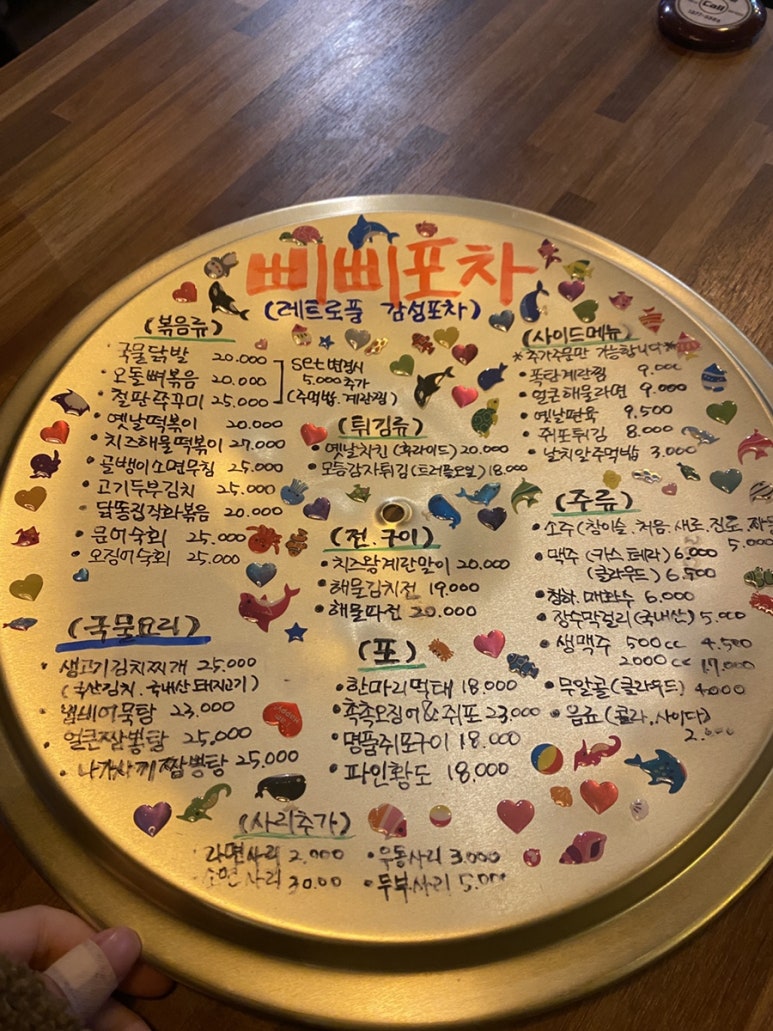 Call
삐삐포차
(레트로풍 감성포차)
(볶음류)
국물닭발 20.000
· 오돌뼈볶음 20.000
· 철판쭈꾸미 25.000
set변경시
5.000추가
(주먹밥.계란찜)
· 옛날떡볶이 20.000
· 치즈해물떡볶이 27.000
· 골뱅이소면무침 25.000
· 고기두부김치 25.000
· 닭똥집직화볶음 20.000
· 문어숙회 25.000
· 오징어숙회 25.000
(국물요리)
· 생고기김치찌개 25.000
(국산김치.국내산돼지고기)
· 냄비어묵탕 23.000
· 얼큰짬뽕탕 25,000
· 나가사끼짬뽕탕 25,000
(튀김류)
· 옛날치킨(후라이드) 20.000
· 모듬감자튀김(트러플오일) 18.000
(전.구이)
· 치즈왕계란말이 20.000
· 해물김치전 19.000
· 해물파전 20.000
(포)
· 한마리먹태 18.000
· 촉촉오징어&쥐포 23.000
· 명품쥐포구이 18.000
· 파인황도 18.000
(사이드메뉴)
*추가주문만 가능합니다*
· 폭탄계란찜 9.000
· 얼큰해물라면 9.000
· 옛날편육 9,500
· 쥐포튀김 8.000
· 날치알주먹밥 3.000
(주류)
· 소주(참이슬.처음.새로.진로.
5.000
· 맥주(카스 테라) 6.000
(클라우드) 6,500
· 청하.매화수 6.000
· 장수막걸리(국내산) 5.000
· 생맥주 500cc 4.500
2000cc 17.000
· 무알콜(클라우드) 4.000
· 음료(콜라.사이다)
2.000
(사리추가)
· 라면사리 2.000
· 우동사리 3.000
소면사리 30.00
· 두부사리 5.000